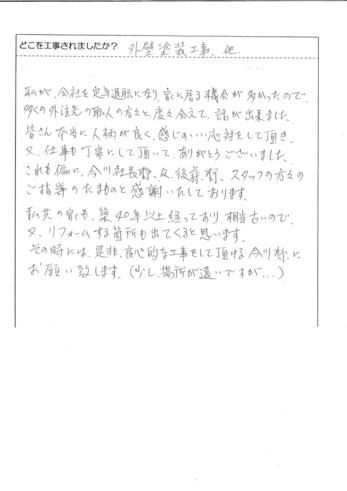 どこを工事されましたか? 外壁塗装工事、他
私が、会社を定年退職になり、家に居る機会が多かったので、
多くの外注先の職人の方々と、度々会えて、話が出来ました。
皆さん本当に人柄が良く、感じのいい応対をして頂き、
又、仕事も丁寧にして頂いて、ありがとうございました。
これも偏に、今川社長様、又、後藤様、スタッフの方々の
ご指導のたまものと感謝いたしております。
私共の家も、築40年以上経っており、相当古いので、
又、リフォームする箇所も出てくると思います。
その時には、是非、良心的な工事をして頂ける今川様に
お願い致します。(少し、場所が遠いですが...)